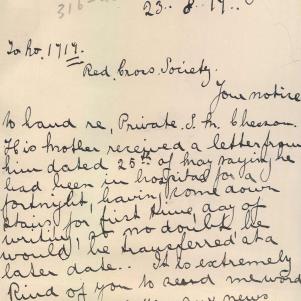 316
23. 8. 17.
To No. 1717.
Red Cross Society.
Your notice
to hand re, Private S. M. Chesson.
His mother received a letter from
him dated 25th of May saying he
had been in hospital for a
fortnight, having come down
stairs for first time, day of
writing, so no doubt he
would be transferred at a
later date.. It is extremely
kind of you to send me word
news